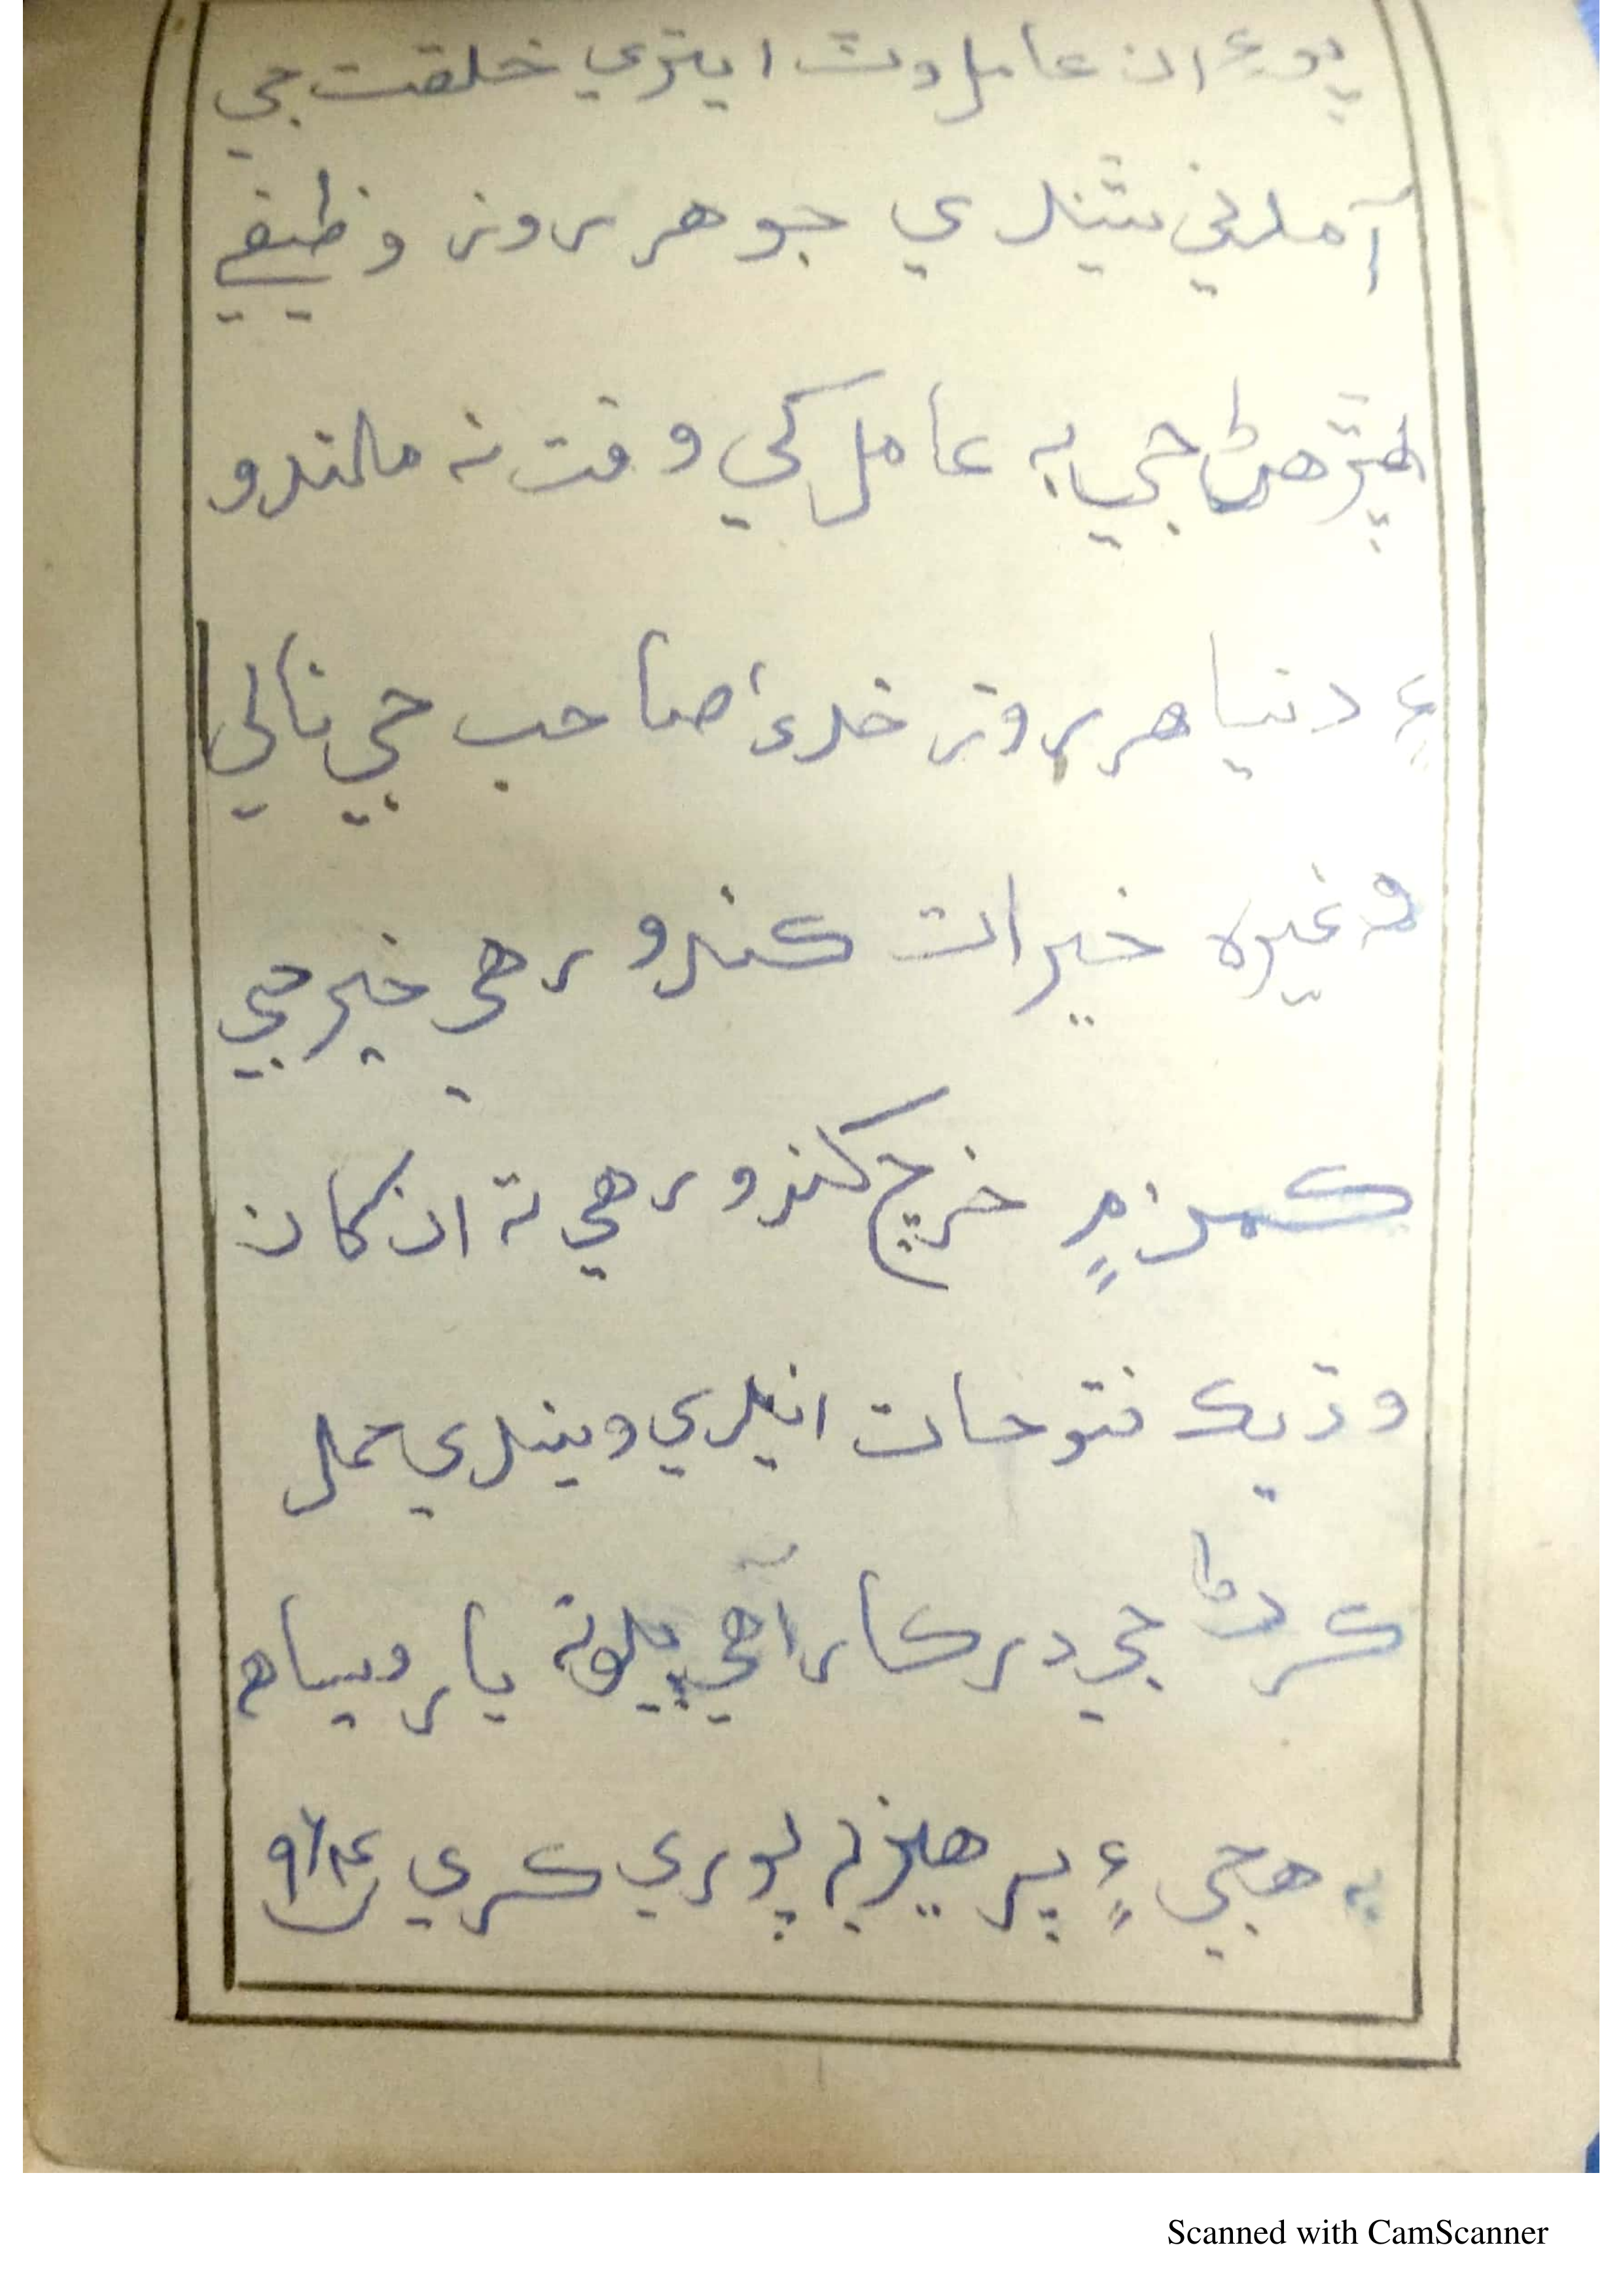 پوءِ ان عامل وٽ ايتري خلقت جي
آمدني ٿيندي جو هر روز وظيفي
پڙهڻ جي به عامل کي وقت نه ملندو
۽ دنيا هر روز خداءِ صاحب جي نالي
وغيره خيرات ڪندو رهي خير جي
ڪمن ۾ خرچ ڪندو رهي ته ان کان
وڌيڪ فتوحات ايندي ويندي عمل
ڪرڻ جي درڪار آهي پلوته يا ر ويساه
به هجي ۽ پرهيز به پوري ڪري
Scanned with CamScanner